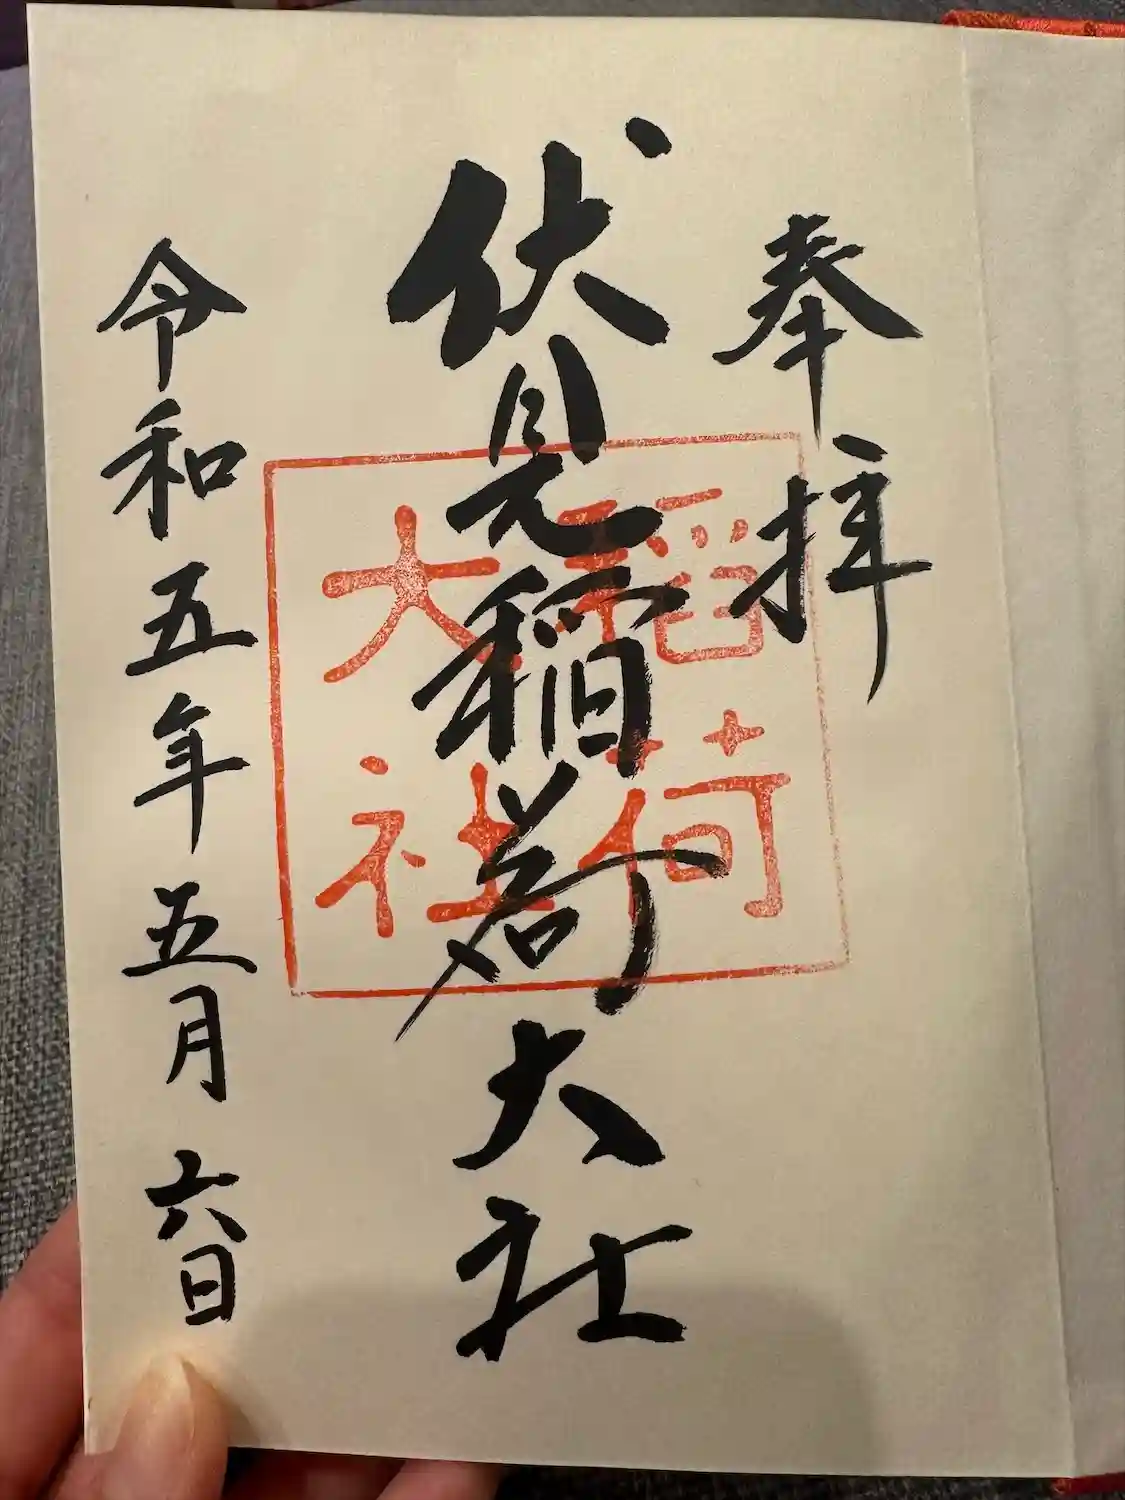 奉拝
伏見稲荷大社
稲荷
大社
令和五年五月六日